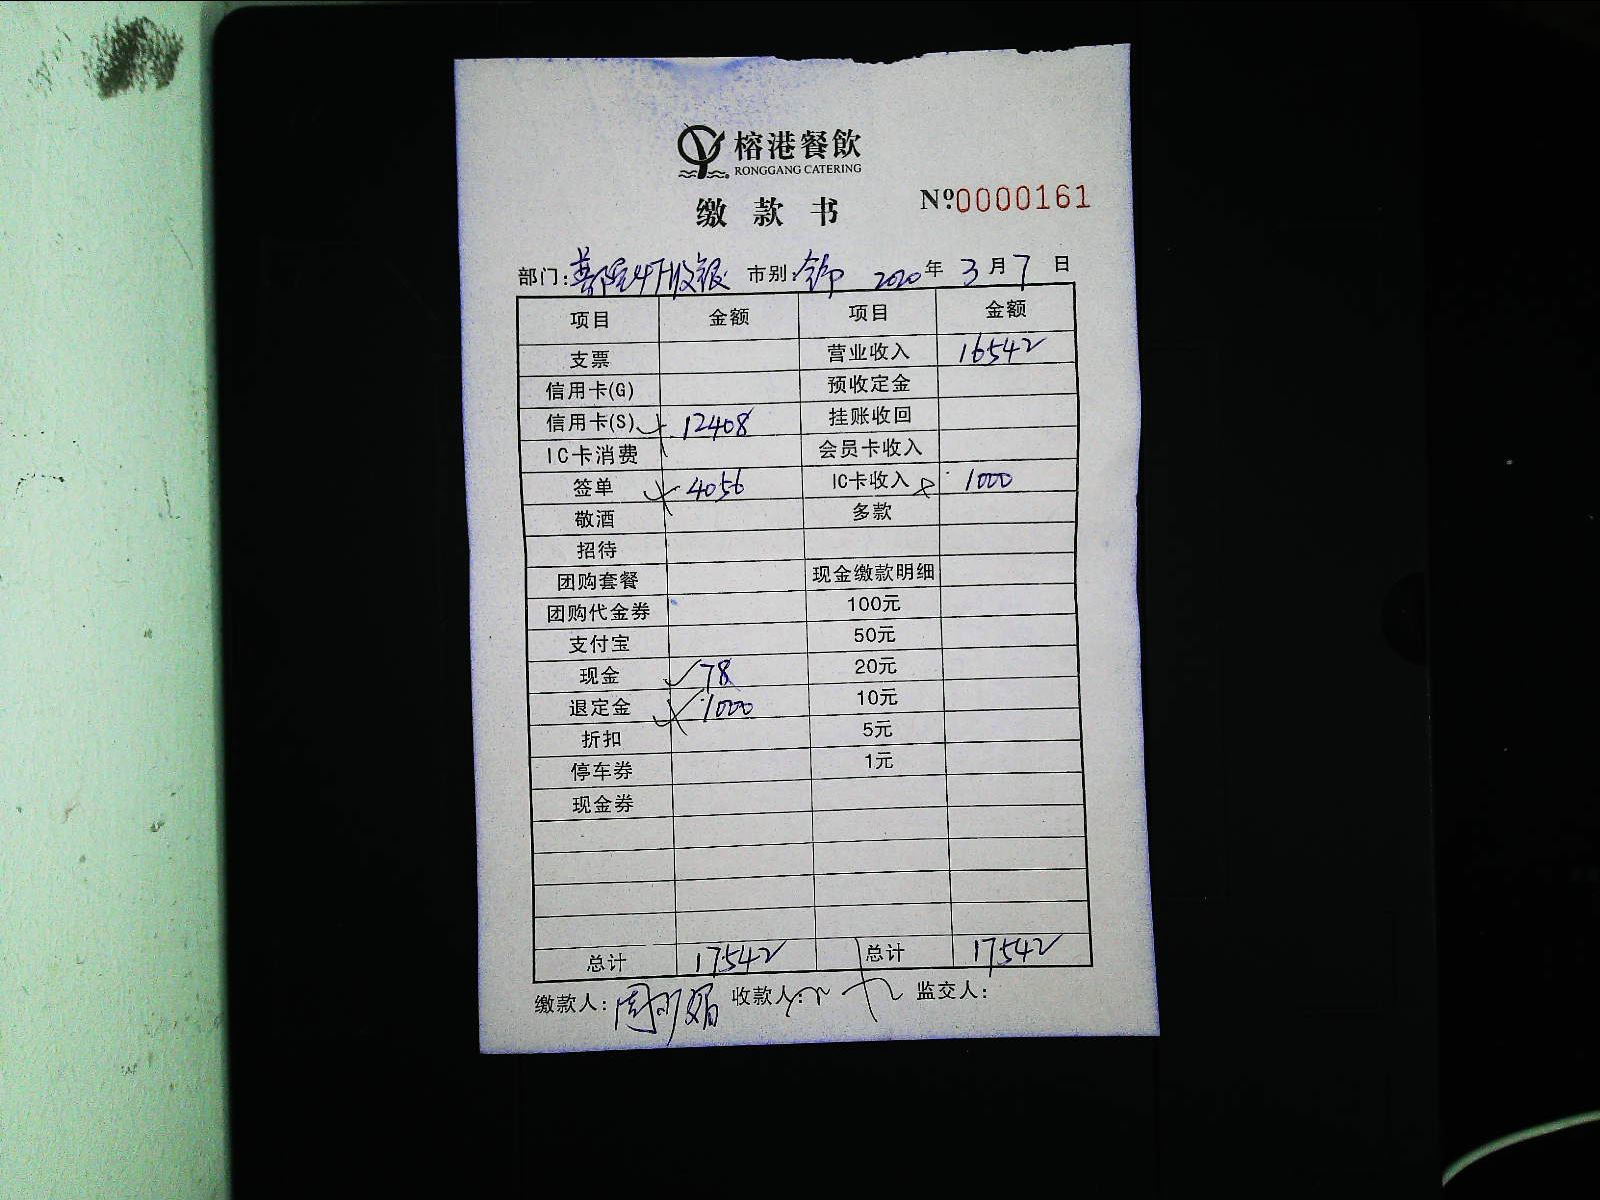 榕港餐飲
RONGGANG CATERING
缴款书
№0000161
部门: 市别: 2020年3月7日
项目 金额 项目 金额
支票 营业收入 16542
信用卡(G) 预收定金
信用卡(S) 12408 挂账收回
IC卡消费 会员卡收入
签单 4056 IC卡收入 1000
敬酒 多款
招待
团购套餐 现金缴款明细
团购代金券 100元
支付宝 50元
现金 78 20元
退定金 1000 10元
折扣 5元
停车券 1元
现金券
总计 17542 总计 17542
缴款人: 收款人: 监交人: